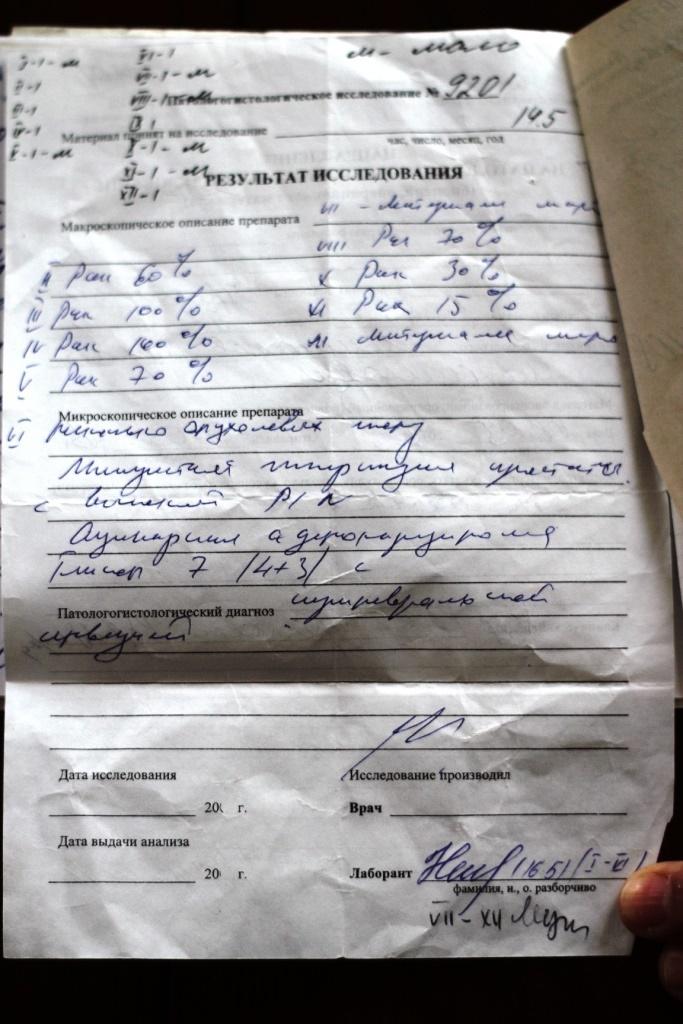 I-1-м VI-1 м- мало
II-1 VII-1-м
III-1 VIII-1-м Патологогистологическое исследование № 9201
IV-1 IX 1 Материал принят на исследование 145
V-1-м X-1-м час, число, месяц, год
XI-1-м
XII-1
РЕЗУЛЬТАТ ИССЛЕДОВАНИЯ
Макроскопическое описание препарата VII - Материала мало
VIII Рак 70 %
II Рак 60 % X Рак 30 %
III Рак 100 % XI Рак 15 %
IV Рак 100 % XII Материала мало
V Рак 70 %
Микроскопическое описание препарата
VI опухолевых
гиперплазия простаты
с высокой PIN
Ацинарная аденокарцинома
Глисон 7 (4+3) с
Патологогистологический диагноз периневральной
инвазией
Дата исследования Исследование производил
20 г. Врач
Дата выдачи анализа
20 г. Лаборант (165) (I-VI)
фамилия, и., о. разборчиво
VII-XII